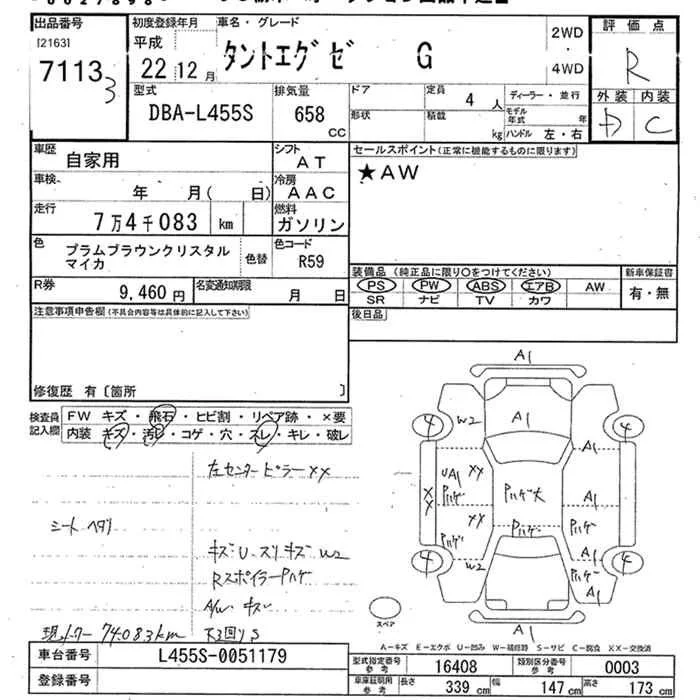 出品番号 初度登録年月 車名・グレード 評価点
[2163] 平成 タントエグゼ G 2WD・4WD R
7113 3 22年12月 外装 内装
型式 排気量 ドア 定員 4人 ディーラー・並行
DBA-L455S 658 CC 形状 積載 kg モデル年式 年 ハンドル 左・右 D C
車歴 自家用 シフト AT セールスポイント(正常に機能するものに限ります)
車検 年 月( 日) 冷房 AAC ★AW
走行 7万4千083 km 燃料 ガソリン
色 プラムブラウンクリスタルマイカ 色替 色コード R59
装備品 (純正品に限り○をつけてください) 新車保証書
R券 9,460円 名変通知期限 月 日 PS PW ABS エアB AW 有・無
SR ナビ TV カワ
注意事項申告欄(不具合内容等は具体的に記入して下さい) 後日品
修復歴 有〔箇所 〕
検査員記入欄 FW キズ・飛石・ヒビ割・リペア跡・×要
内装 キズ・汚レ・コゲ・穴・スレ・キレ・破レ
左センターピラーXX
シートヘタリ
キズU・スリキズW2
Rスポイラーハゲ
A/W キズ
現メーター74083km
A1
4 W2 A1 4
A1
UA1 XX
Pハゲ Pハゲ大 A1
XX XX Pハゲ Pハゲ
Pハゲ
4 W2 A1 4
Pハゲ A1
スペア A1
A-キズ E-エクボ U-凹み W-補修跡 S-サビ C-腐食 XX-交換済
車台番号 L455S-0051179 型式指定番号 参考 16408 類別区分番号 参考 0003
登録番号 車庫証明用 参考 長さ 339 cm 幅 147 cm 高さ 173 cm